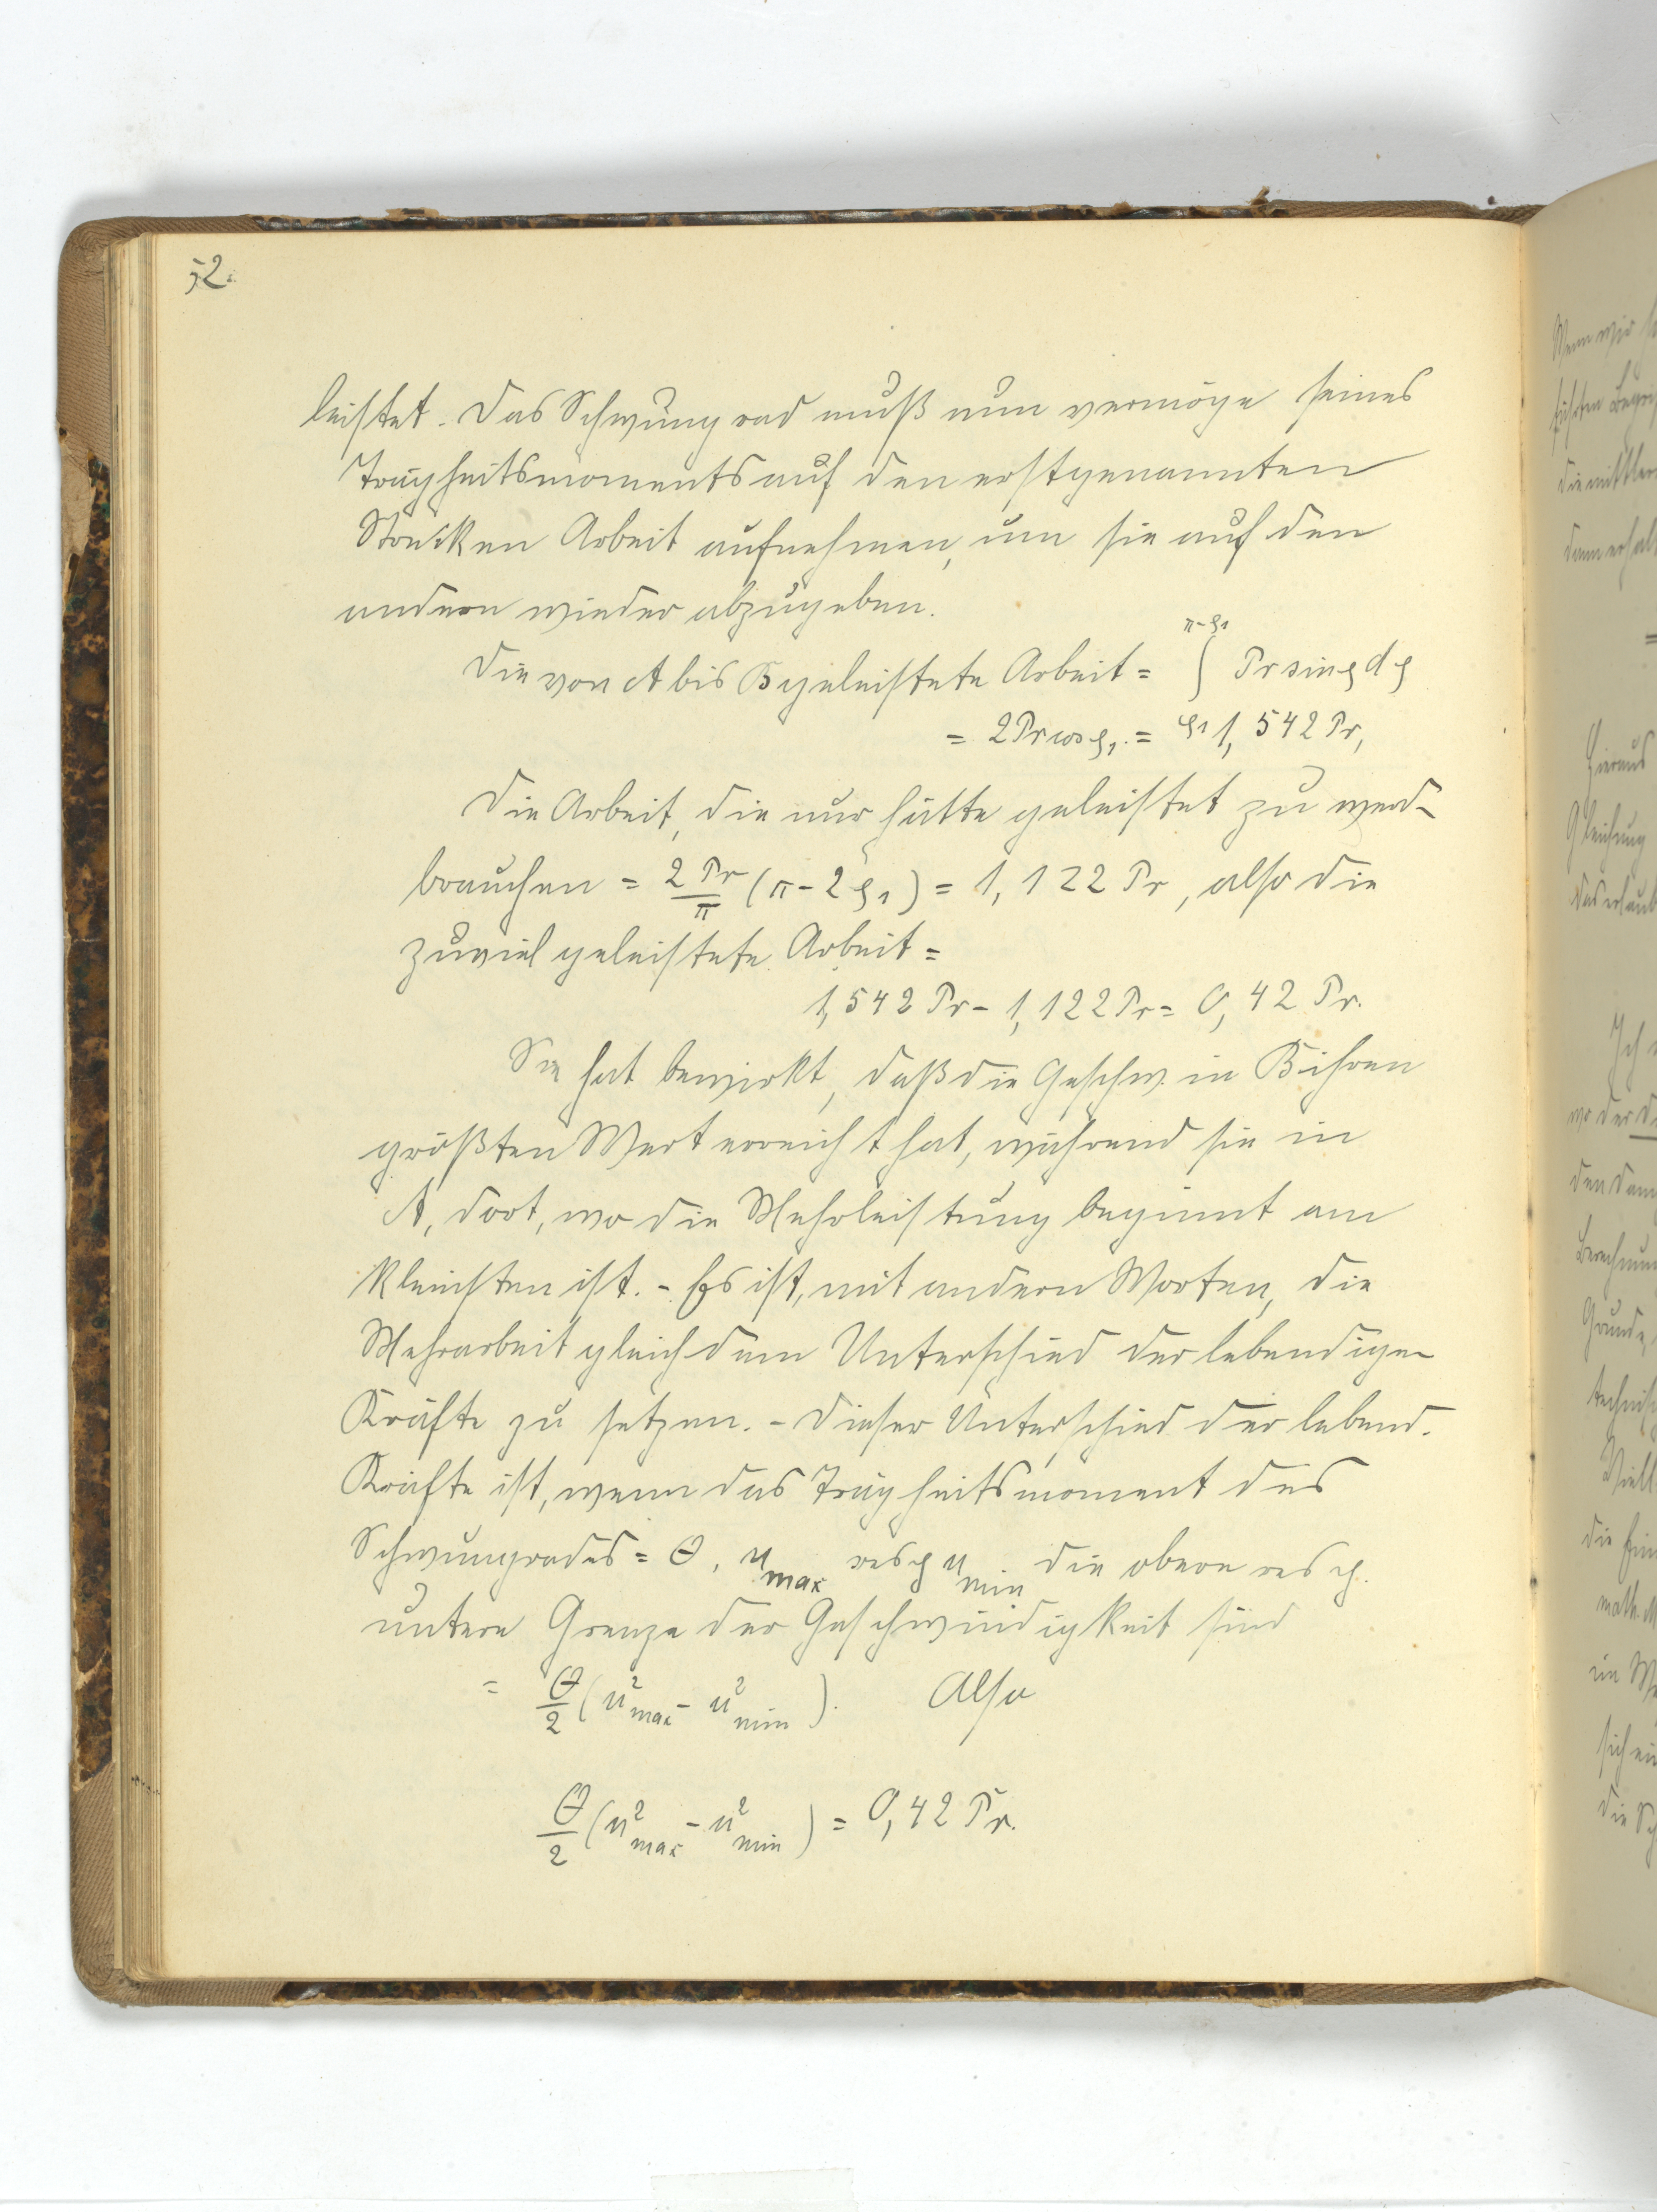 52.
leistet. Das Schwungrad muß nun vermöge seines
Trägheitsmoments auf den erstgenannten
Strecken Arbeit aufnehmen, um sie auf den
andern wieder abzugeben.
Die von A bis B geleistete Arbeit = ∫_{φ₁}^{π-φ₁} Pr sin φ dφ
= 2Pr cos φ₁. = 1,542 Pr,
Die Arbeit, die nur hätte geleistet zu werd-
brauchen = 2Pr/π (π - 2φ₁) = 1,122 Pr, also die
zuviel geleistete Arbeit =
1,542 Pr - 1,122 Pr = 0,42 Pr.
Sie hat bewirkt, daß die Geschw. in B ihren
größten Wert erreicht hat, während sie in
A, dort, wo die Mehrleistung beginnt am
kleinsten ist. - Es ist, mit andern Worten, die
Mehrarbeit gleich dem Unterschied der lebendigen
Kräfte zu setzen. - Dieser Unterschied der lebend.
Kräfte ist, wenn das Trägheitsmoment des
Schwungrades = Θ, u_max resp u_min die obere resp.
untere Grenze der Geschwindigkeit sind
= Θ/2 (u²_max - u²_min). Also
Θ/2 (u²_max - u²_min) = 0,42 Pr.